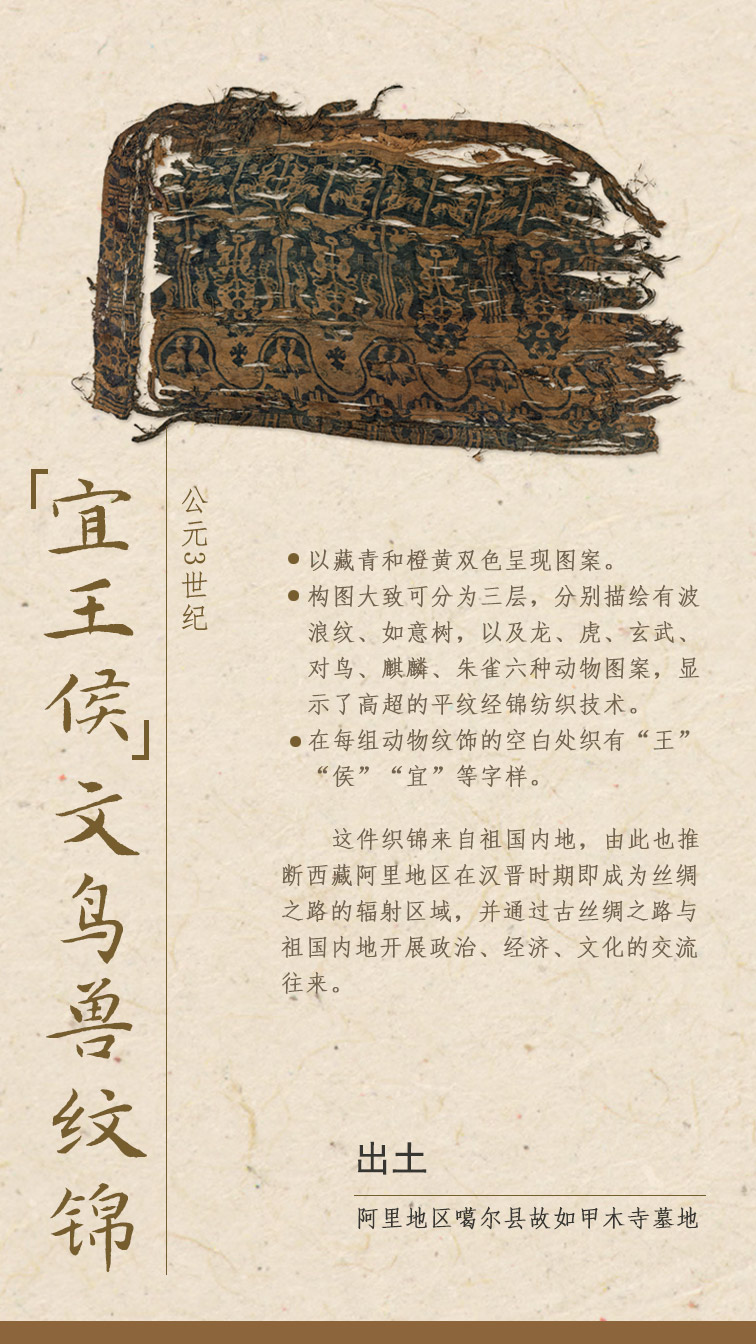 「宜王侯」文鸟兽纹锦
公元3世纪
●以藏青和橙黄双色呈现图案。
●构图大致可分为三层，分别描绘有波
浪纹、如意树，以及龙、虎、玄武、
对鸟、麒麟、朱雀六种动物图案，显
示了高超的平纹经锦纺织技术。
●在每组动物纹饰的空白处织有“王”
“侯”“宜”等字样。
这件织锦来自祖国内地，由此也推
断西藏阿里地区在汉晋时期即成为丝绸
之路的辐射区域，并通过古丝绸之路与
祖国内地开展政治、经济、文化的交流
往来。
出土
阿里地区噶尔县故如甲木寺墓地